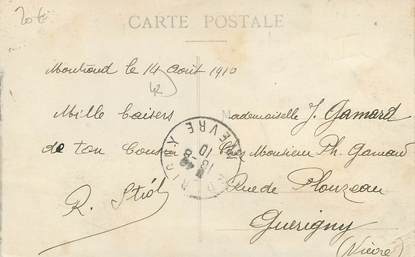 20 €
CARTE POSTALE
Montrond le 14 Août 1910
Mille baisers
de ton Cousin
R.
Mademoiselle J. Gamard
Chez Monsieur Ph. Gamard
Rue de Plouzeau
Guerigny
(Nièvre)
NIEVRE
18-8
10